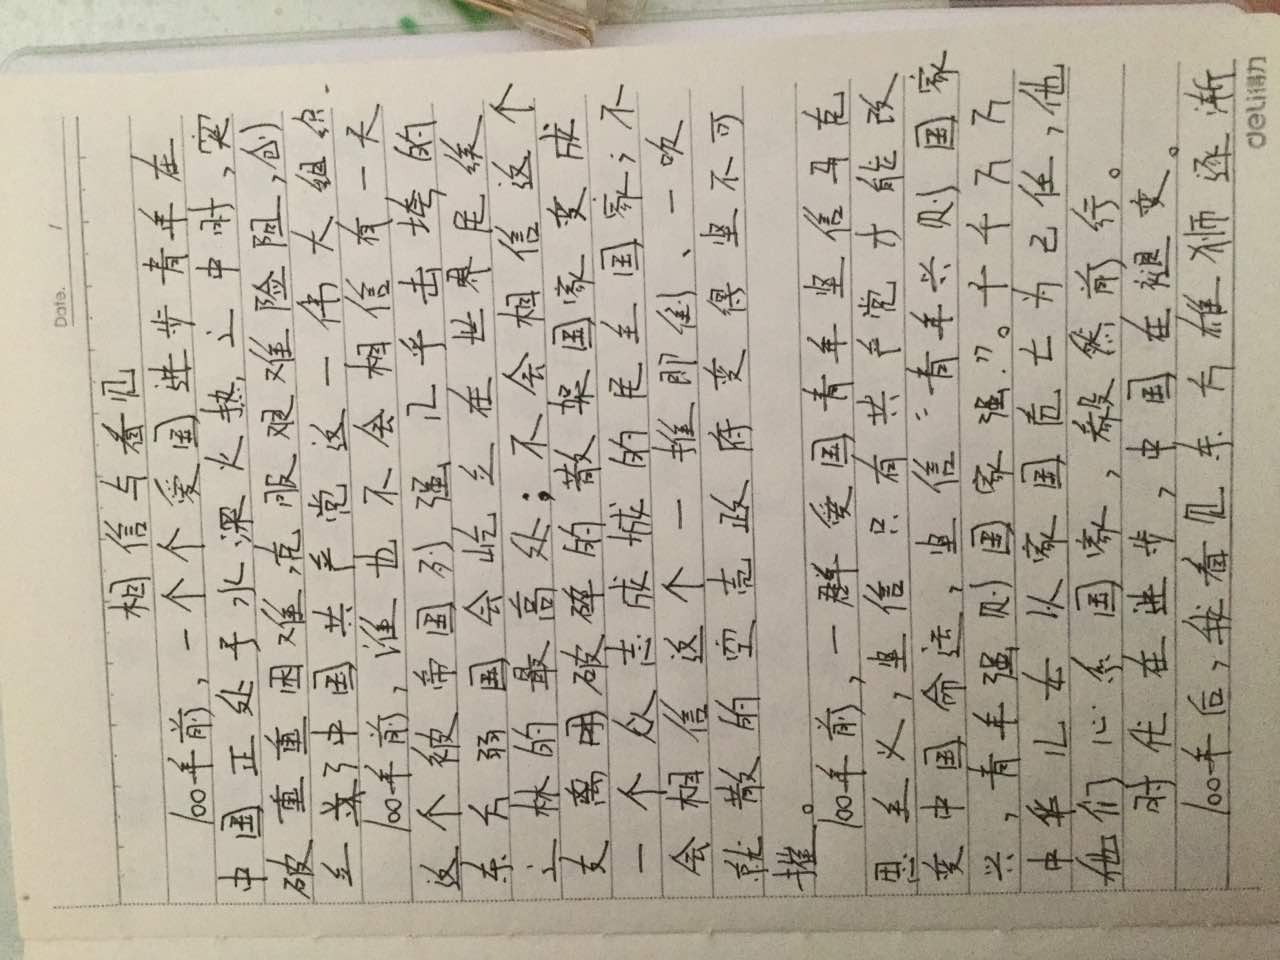 Date. /
相信与看见
100年前，一个个爱国进步青年在
中国正处于水深火热之中时，突
破重重困难，克服艰难险阻，创
立了中国共产党这一伟大组织.
100年前，谁也不会相信有一天
这个被帝国列强几乎击垮的
东方弱国会屹立在世界民族
之林的最高处；不会相信这个
支离破碎的散架国家变成
一个众志成城的民主国家；不
会相信这个一推即倒、一吹
就散的空壳政府变得坚不可
摧。
100年前，一群爱国青年坚信马克
思主义，坚信只有共产党才能改
变中国命运，坚信：“青年兴则国家
兴，青年强则国家强.”。千千万万
中华儿女以家国危亡为己任，他
他们心系国家，毅然前行。
时代在进步，中国在褪变。
100年后，我看见东方雄狮逐渐
deli得力